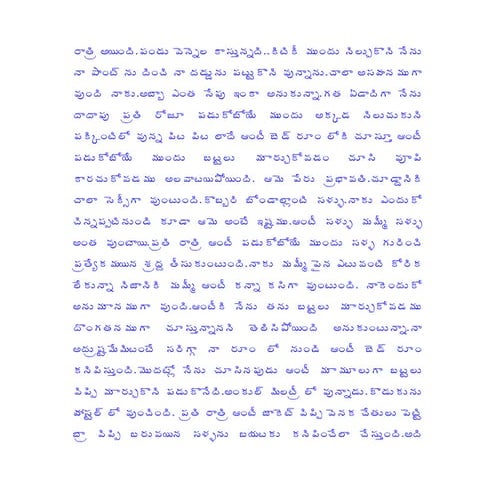 రాత్రి అయింది.పండు వెన్నెల కాస్తున్నది..కిటికీ ముందు నిల్చుకొని నేను
నా పాంట్ ను దించి నా దడ్డును పట్టుకొని వున్నాను.చాలా అసహనముగా
వుంది నాకు.అబ్బా ఎంత సేపు ఇంకా అనుకున్నా.గత ఏడాదిగా నేను
దాదాపు ప్రతి రోజూ పడుకోబోయే ముందు అక్కడ నిలుచుకుని
పక్కింటిలో వున్న పిట పిట లాడే ఆంటీ బెడ్ రూం లోకి చూస్తూ ఆంటీ
పడుకోబోయే ముందు బట్టలు మార్చుకోవడం చూసి వూపి
కారచుకోవడము అలవాటయిపోయింది. ఆమె పేరు ప్రభావతి.చూడ్డానికి
చాలా సెక్సీగా వుంటుంది.కొబ్బరి బోండాల్లాంటి సళ్ళు.నాకు ఎందుకో
చిన్నప్పటినుండి కూడా ఆమె అంటే ఇష్టము.ఆంటీ సళ్ళు మమ్మీ సళ్ళు
అంత వుంటాయి.ప్రతి రాత్రి ఆంటీ పడుకోబోయే ముందు సళ్ళ గురించి
ప్రత్యేకమయిన శ్రద్ద తీసుకుంటుంది.నాకు మమ్మీ పైన ఎటువంటి కోరిక
లేకున్నా నిజానికి మమ్మీ ఆంటీ కన్నా కసిగా వుంటుంది. నాకెందుకో
అనుమానముగా వుంది.ఆంటీకి నేను తను బట్టలు మార్చుకోవడము
దొంగతనముగా చూస్తున్నానని తెలిసిపోయింది అనుకుంటున్నా.నా
అద్రుష్టమేమిటంటే సరిగ్గా నా రూం లో నుండి ఆంటీ బెడ్ రూం
కనిపిస్తుంది.మొదట్లో నేను చూసినపుడు ఆంటీ మామూలుగా బట్టలు
విప్పి మార్చుకొని పడుకొనేది.అంకుల్ మిలట్రీ లో వున్నాడు.కొడుకును
హాస్టల్ లో వుంచింది. ప్రతి రాత్రి ఆంటీ జాకెట్ విప్పి వెనక చేతులు పెట్టి
బ్రా విప్పి బరువయిన సళ్ళను బయటకు కనిపించేలా చేస్తుంది.అది